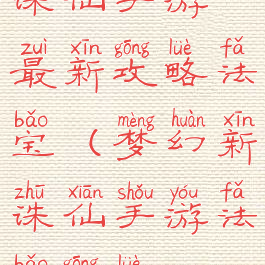 诛仙手游
zuì xīn gōng lüè fǎ
最新攻略法
bǎo mèng huàn xīn
宝（梦幻新
zhū xiān shǒu yóu fǎ
诛仙手游法
bǎo gōng lüè